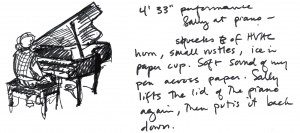 4' 33" performance
Sally at piano –
squeaks of HVAC
hum, small rustles, ice in
paper cup. Soft sound of my
pen across paper. Sally
lifts the lid of the piano
again, then puts it back
down.